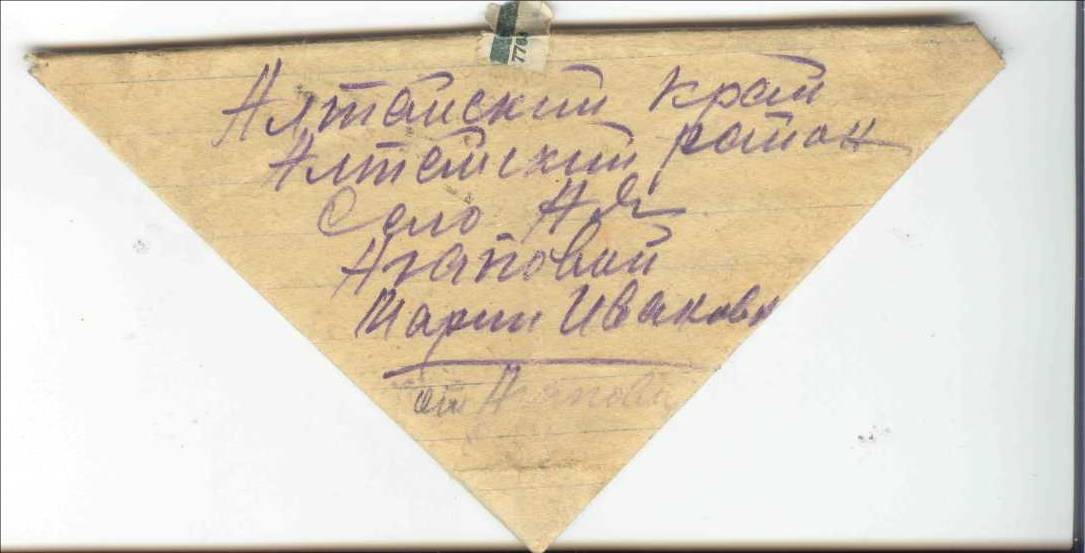 7768
Алтайский край
Алтайский район
Село Ая
Агаповой
Марии Ивановн
от Агапова